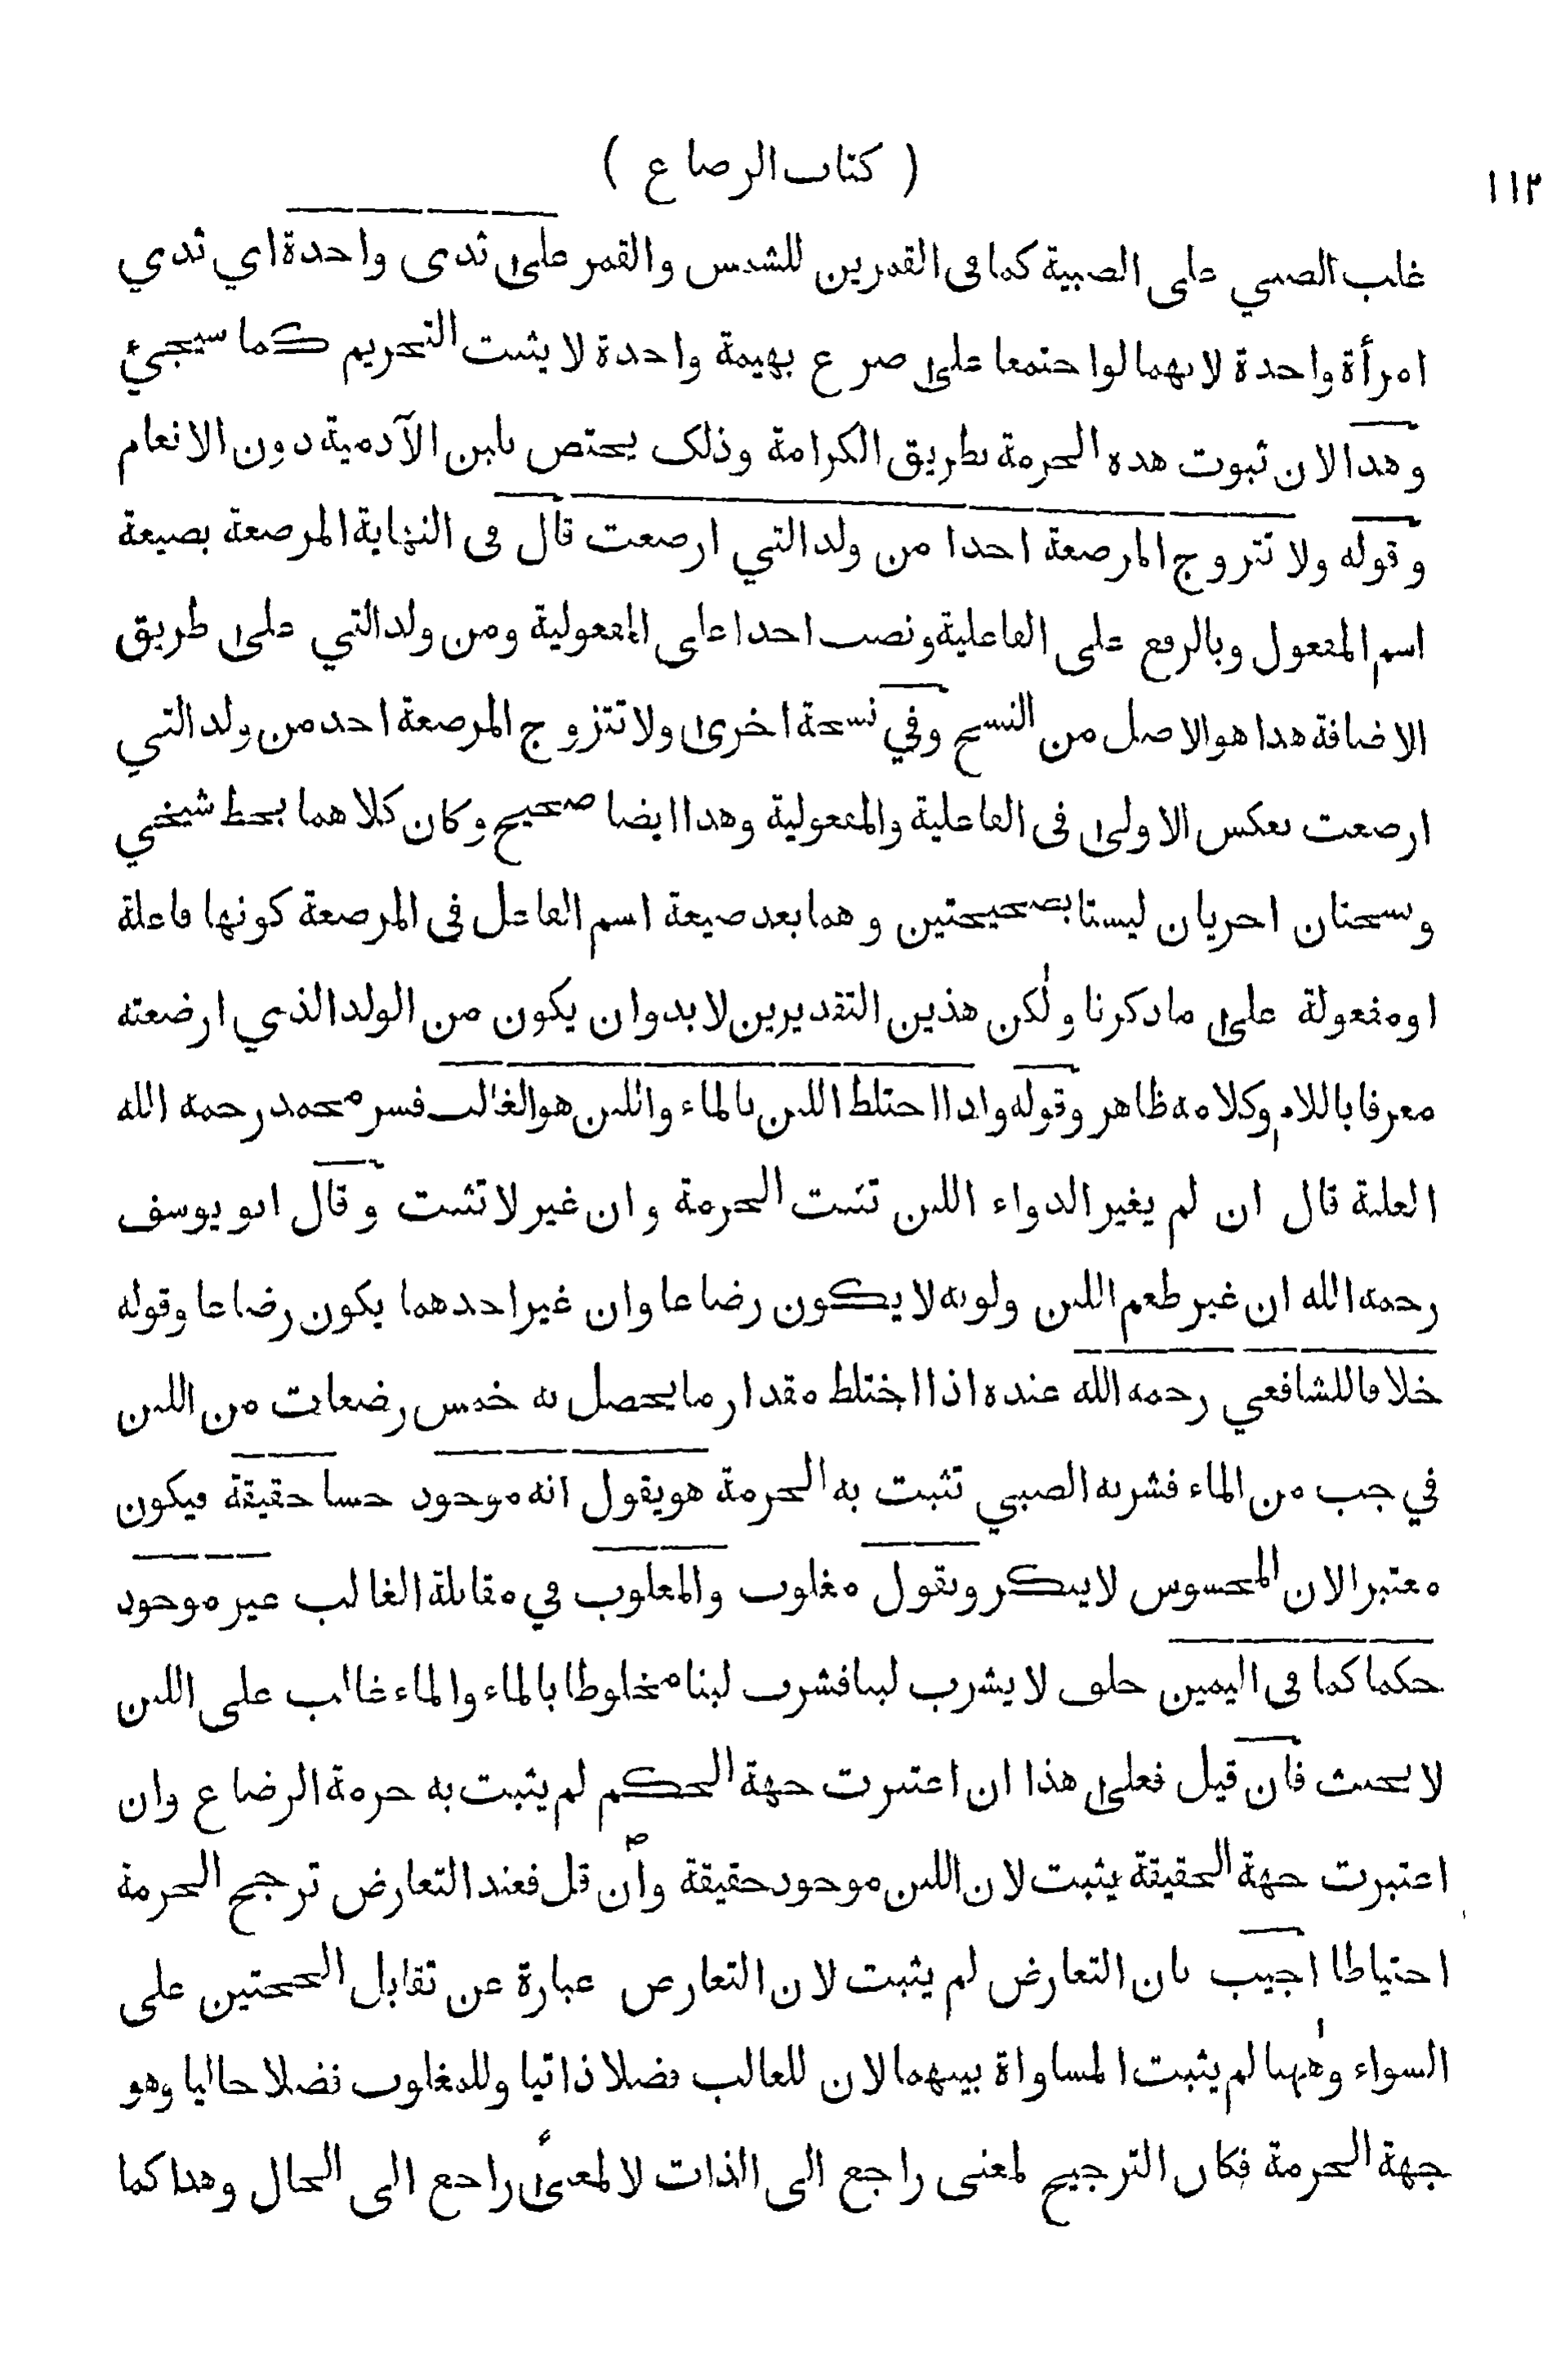 ( كتاب الرضاع )
١١٢
غلب الصبي على الصبية كما في القمرين للشمس والقمر على ثدى واحدة اي ثدي
امرأة واحدة لانهما لو اجتمعا على ضرع بهيمة واحدة لا يثبت التحريم كما سيجيء
وهذا لان ثبوت هذه الحرمة بطريق الكرامة وذلك يختص بلبن الآدمية دون الانعام
وقوله ولا تتزوج المرضعة احدا من ولد التي ارضعت قال في النهاية المرضعة بصيغة
اسم المفعول وبالرفع على الفاعلية ونصب احدا على المفعولية ومن ولد التي على طريق
الاضافة هذا هو الاصل من النسخ وفي نسخة اخرى ولا تتزوج المرضعة احد من ولد التي
ارضعت بعكس الاولى في الفاعلية والمفعولية وهذا ايضا صحيح وكان كلاهما بخط شيخي
ونسختان اخريان ليستا بصحيحتين وهما بعد صيغة اسم الفاعل في المرضعة كونها فاعلة
او مفعولة على ما ذكرنا ولكن هذين التقديرين لا بد وان يكون من الولد الذي ارضعته
معرفا باللام وكلامه ظاهر وقوله واذا اختلط اللبن بالماء واللبن هو الغالب فسر محمد رحمه الله
الغلبة قال ان لم يغير الدواء اللبن تثبت الحرمة وان غير لا تثبت وقال ابو يوسف
رحمه الله ان غير طعم اللبن ولونه لا يكون رضاعا وان غير احدهما يكون رضاعا وقوله
خلافا للشافعي رحمه الله عنده اذا اختلط مقدار ما يحصل به خمس رضعات من اللبن
في جب من الماء فشربه الصبي تثبت به الحرمة هو يقول انه موجود حسا حقيقة فيكون
معتبرا لان المحسوس لا ينكر ونقول مغلوب والمغلوب في مقابلة الغالب غير موجود
حكما كما في اليمين حلف لا يشرب لبنا فشرب لبنا مخلوطا بالماء والماء غالب على اللبن
لا يحنث فان قيل فعلى هذا ان اعتبرت جهة الحكم لم يثبت به حرمة الرضاع وان
اعتبرت جهة الحقيقة يثبت لان اللبن موجود حقيقة وان قل فعند التعارض ترجح الحرمة
احتياطا اجيب بان التعارض لم يثبت لان التعارض عبارة عن تقابل الحجتين على
السواء وههنا لم يثبت المساواة بينهما لان للغالب فضلا ذاتيا وللمغلوب فضلا حاليا وهو
جهة الحرمة فكان الترجيح لمعنى راجع الى الذات لا لمعنى راجع الى الحال وهذا كما